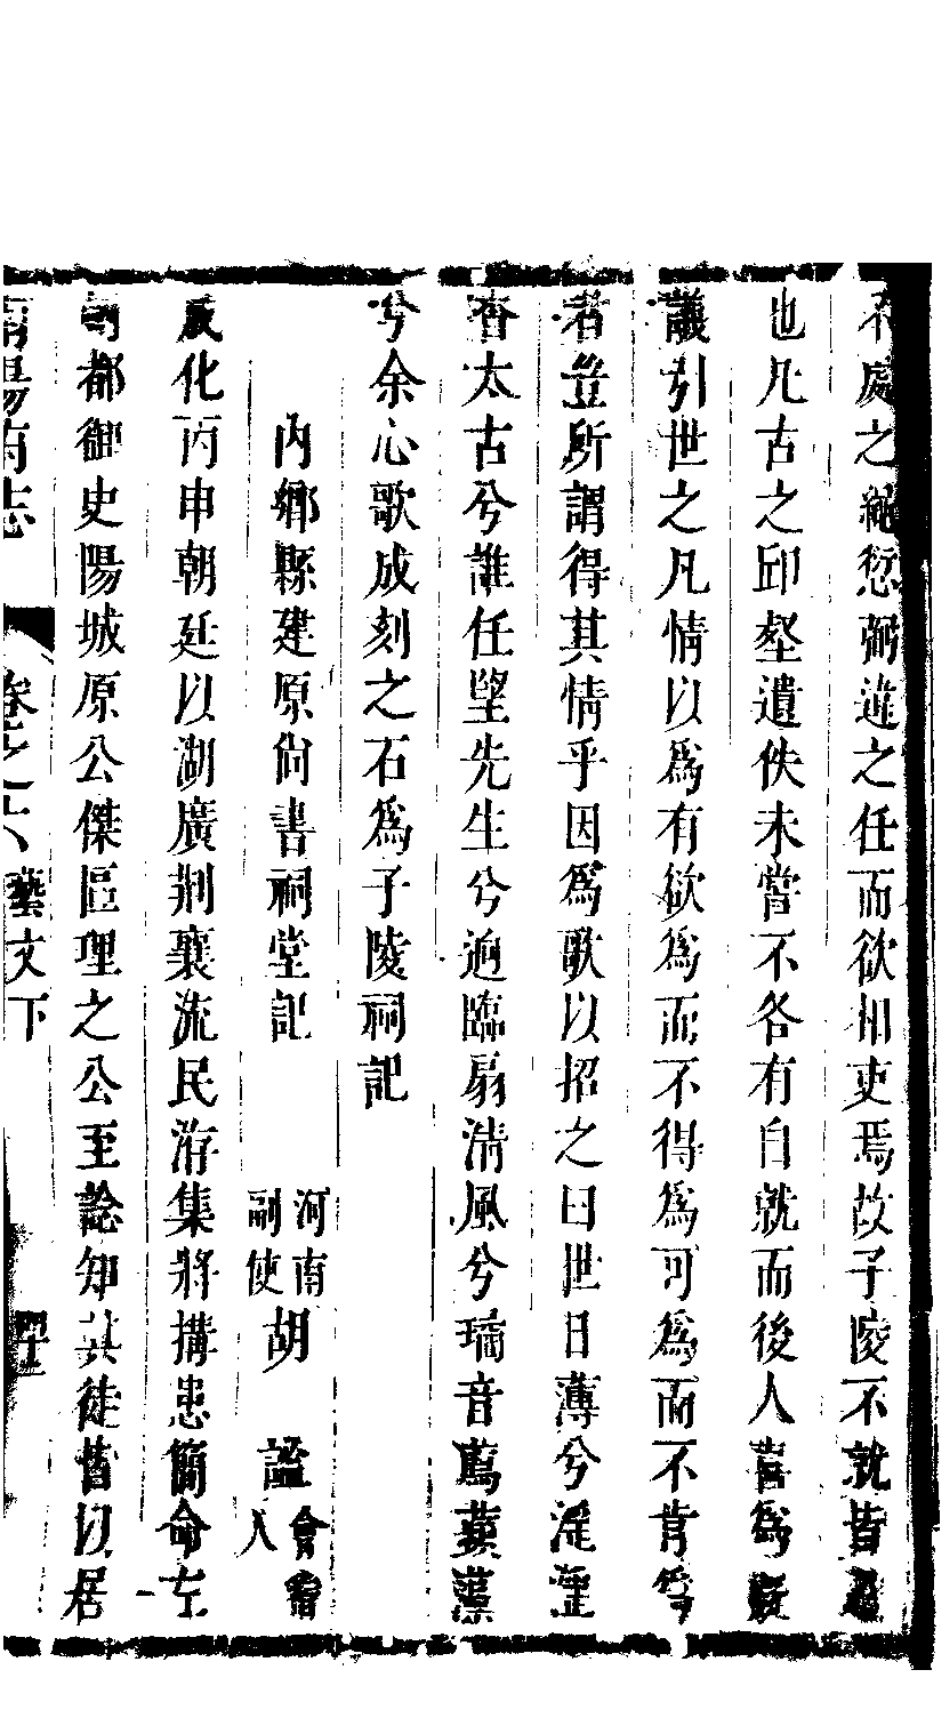 不處之繩愆弼違之任而欲相吏焉故子陵不就皆
也凡古之邱壑遺佚未嘗不各有自就而後人喜為
議引世之凡情以為有欲為而不得為可為而不肯為
者豈所謂得其情乎因為歌以招之曰世日薄兮淫
杳太古兮誰任望先生兮逈臨扇清風兮璚音薦蘋藻
兮余心歌成刻之石為子陵祠記
內鄉縣建原尙書祠堂記 河南副使胡謐會稽人
成化丙申朝廷以湖廣荆襄流民游集將搆患簡命左
都御史陽城原公傑區理之公至諗知其徒皆以居
南陽府志 卷之六 藝文下 四十二